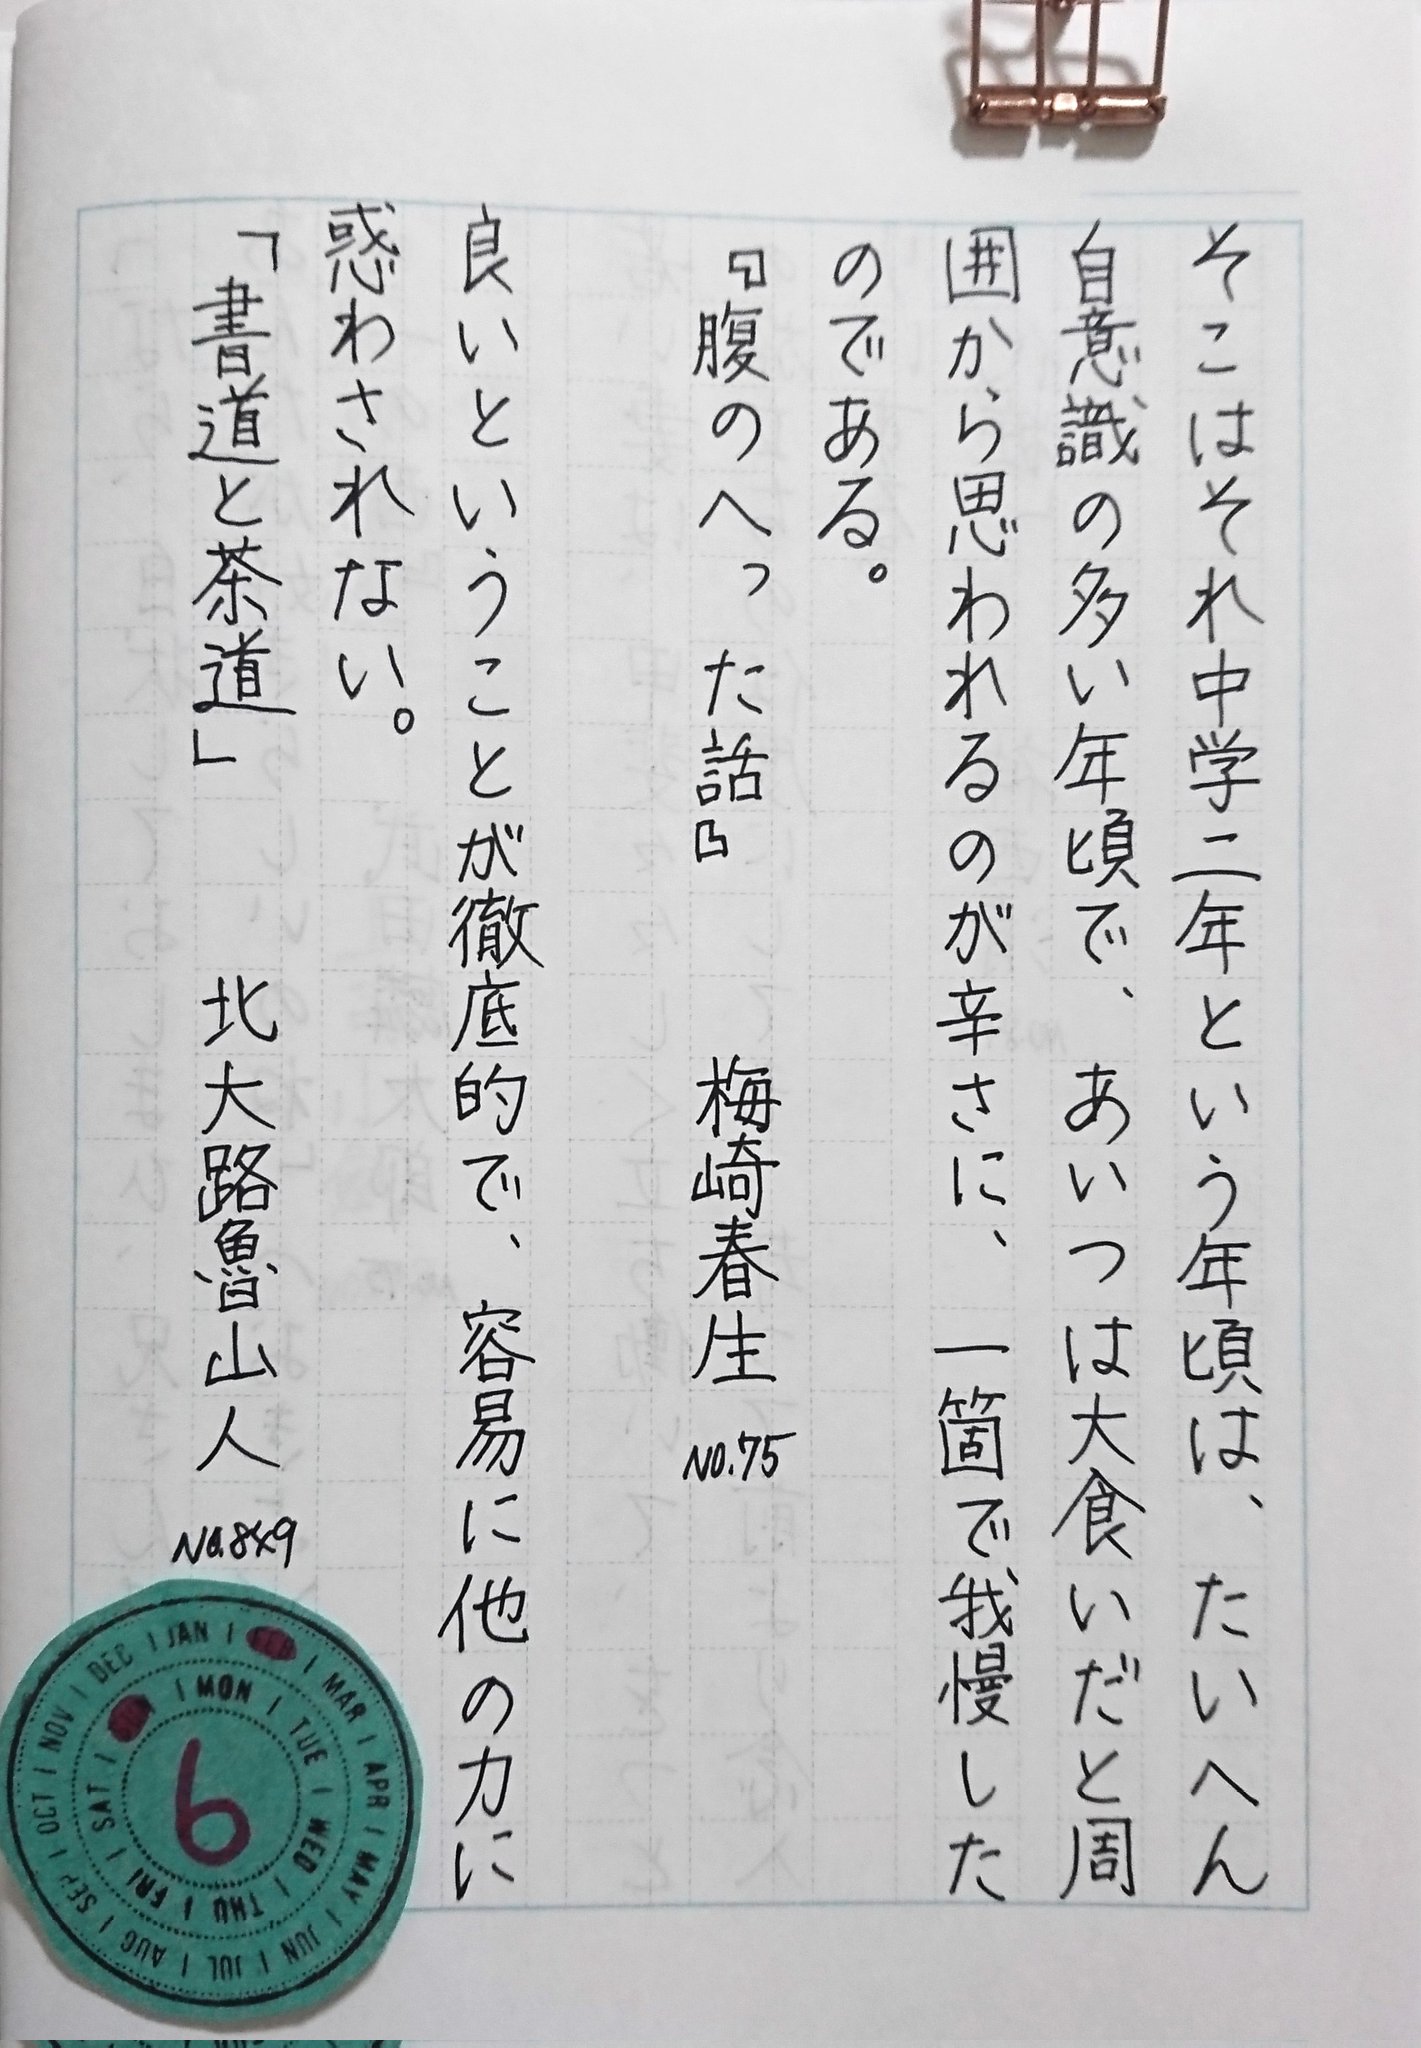 そこはそれ中学二年という年頃は、たいへん
自意識の多い年頃で、あいつは大食いだと周
囲から思われるのが辛さに、一箇で我慢した
のである。
『腹のへった話』 梅崎春生 NO.75
良いということが徹底的で、容易に他の力に
惑わされない。
「書道と茶道」 北大路魯山人
JAN FEB MAR APR MAY JUN JUL AUG SEP OCT NOV DEC
SUN MON TUE WED THU FRI SAT
6